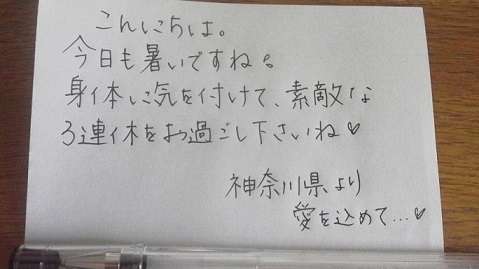 こんにちは。
今日も暑いですね。
身体に気を付けて、素敵な
3連休をお過ごし下さいね♥
神奈川県より
愛を込めて...♥